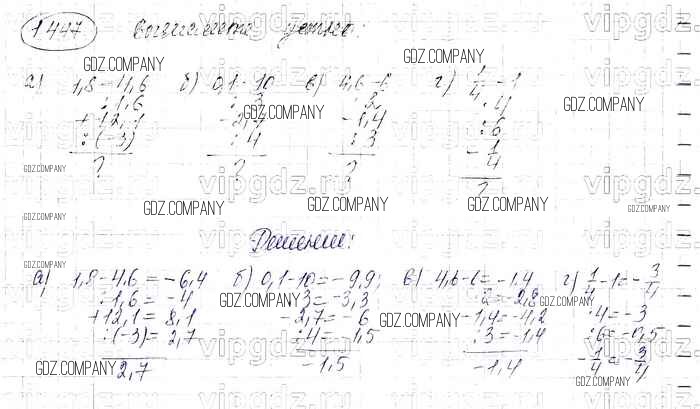 1447 Вычислите устно:
а) 1,8-4,6 б) 0,1-10 в) 4,6-6 г) 1/4-1
:1,6 :3 ·2 ·4
+12,1 -2,7 -1,4 :6
:(-3) :4 :3 -1/4
? ? ? ?
Решение:
а) 1,8-4,6=-6,4 б) 0,1-10=-9,9; в) 4,6-6=-1,4 г) 1/4-1=-3/4
:1,6=-4 :3=-3,3 ·2=-2,8 ·4=-3
+12,1=8,1 -2,7=-6 -1,4=-4,2 :6=-0,5
:(-3)=2,7 :4=-1,5 :3=-1,4 -1/4=-3/4
2,7 -1,5 -1,4
GDZ.COMPANY
vipgdz.ru